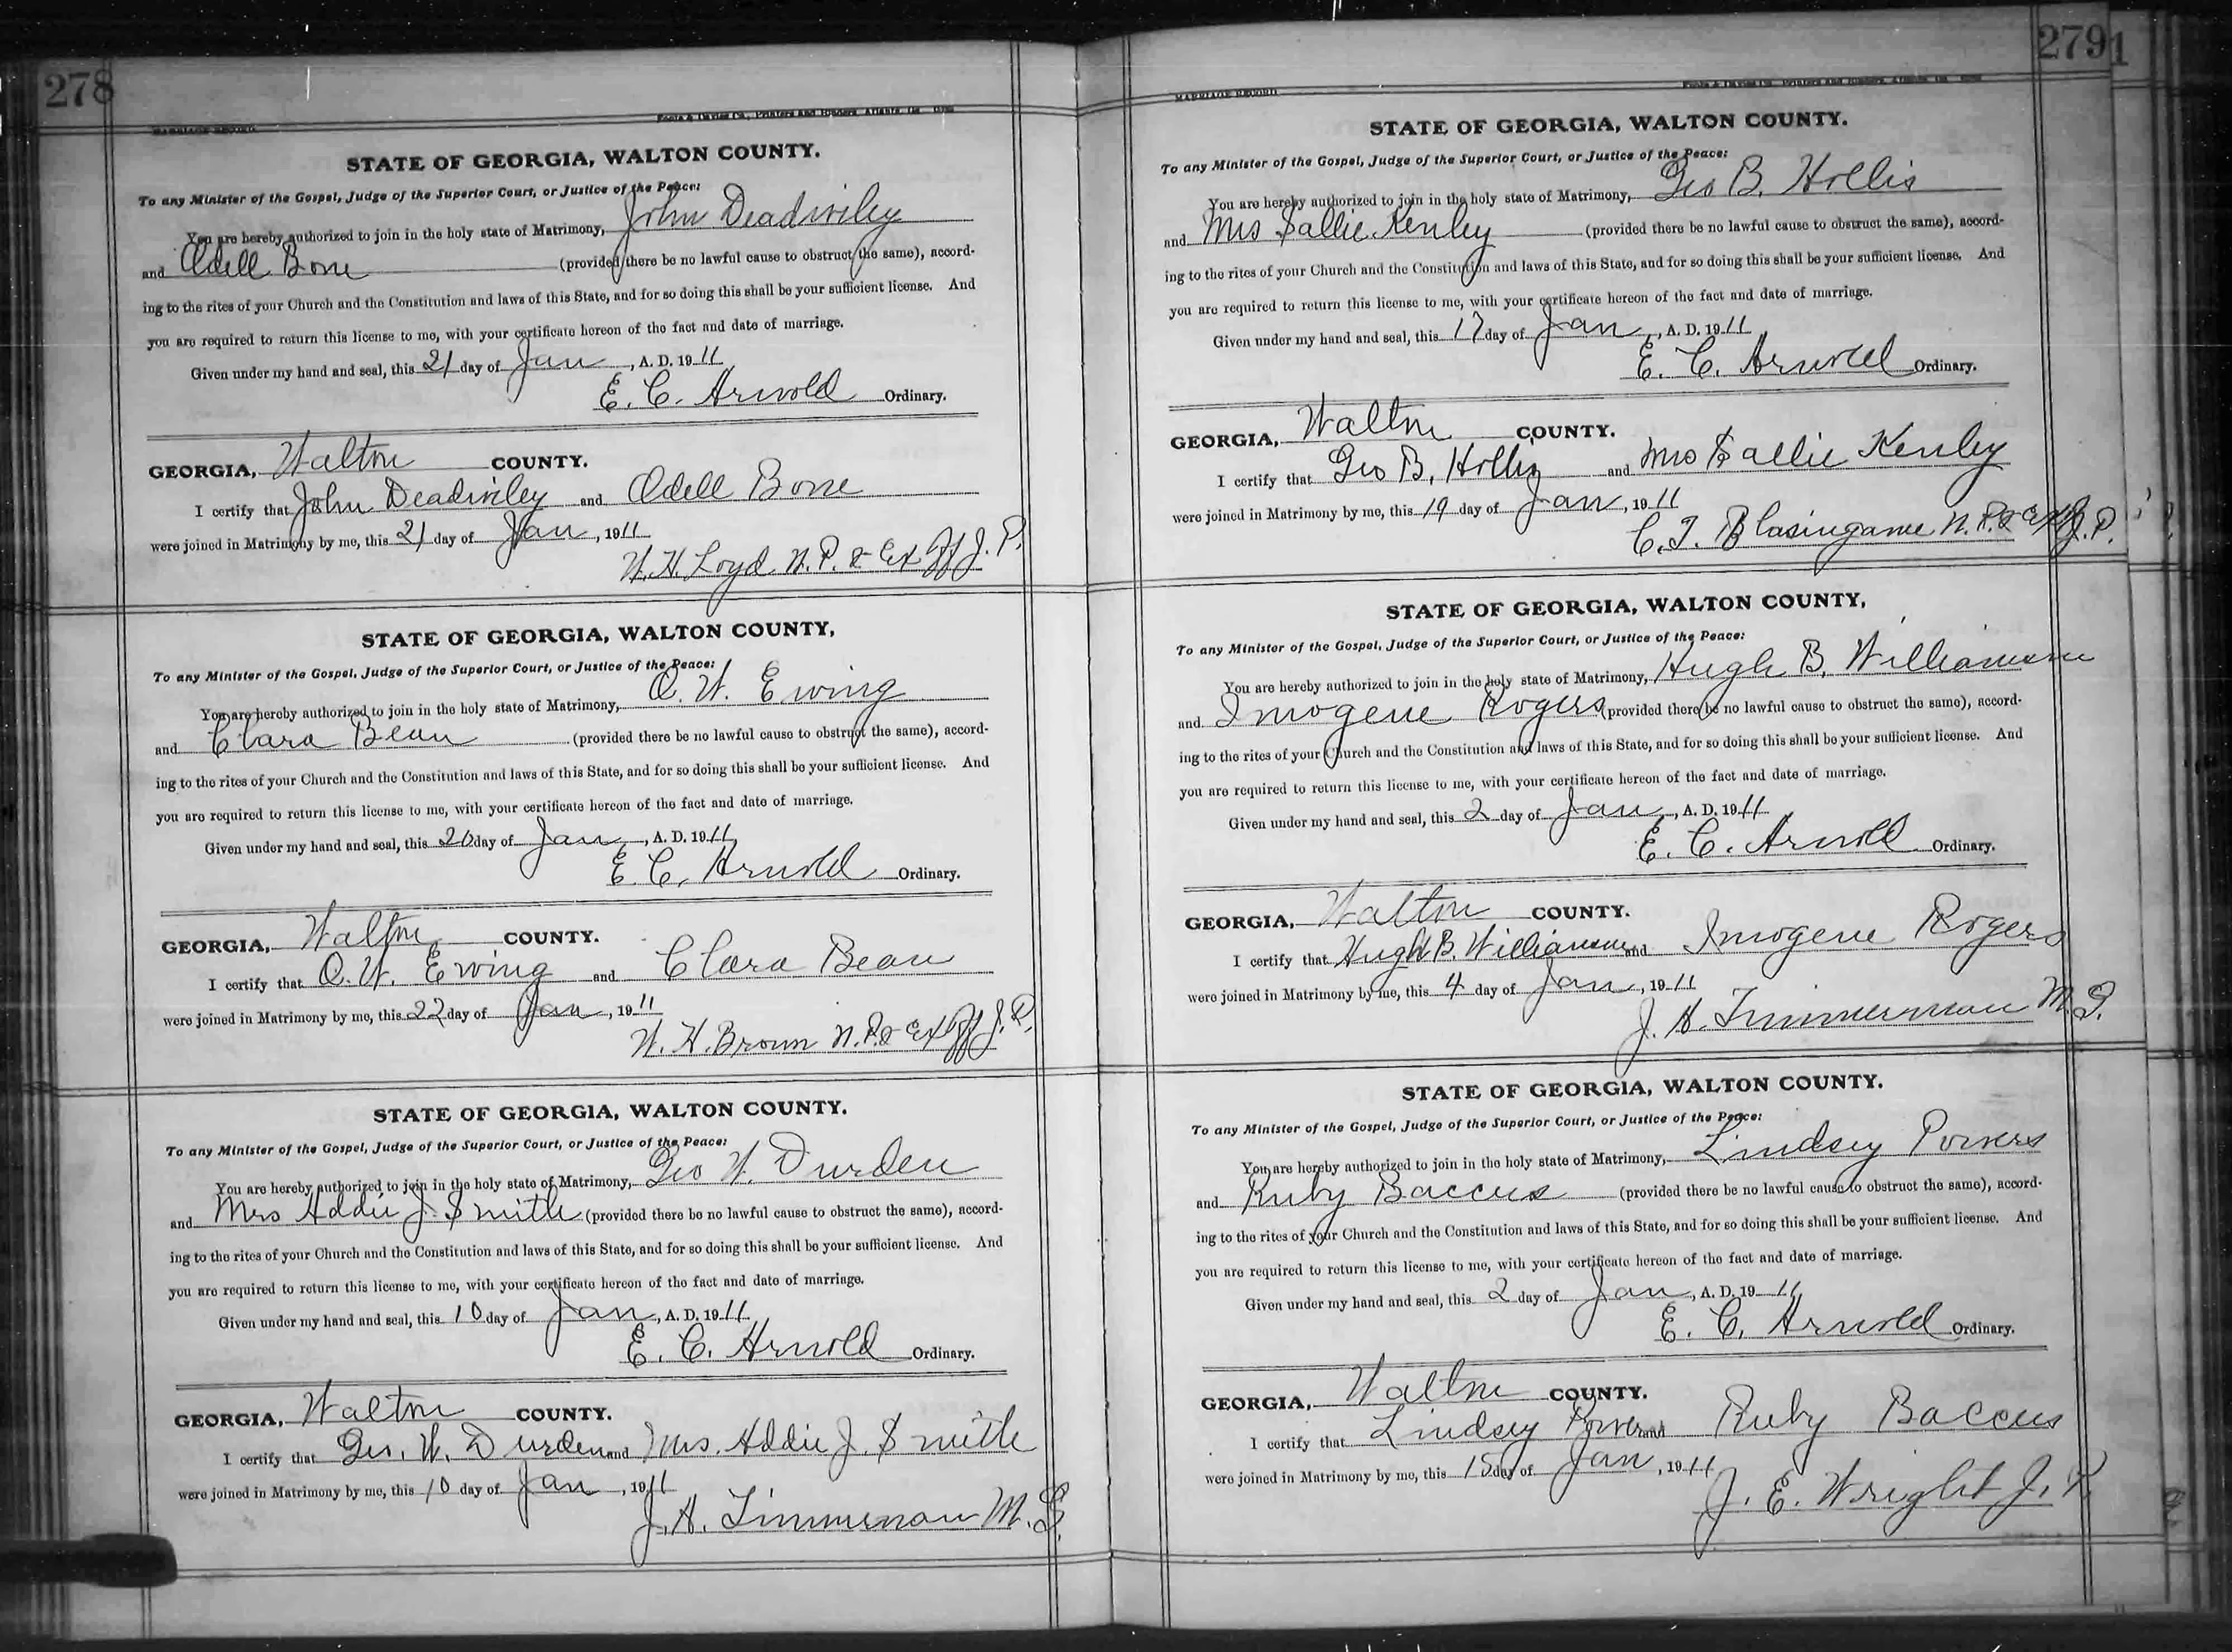 278
MARRIAGE RECORD
Foote & Davies Co., Printers and Binders, Atlanta, Ga.
STATE OF GEORGIA, WALTON COUNTY.
To any Minister of the Gospel, Judge of the Superior Court, or Justice of the Peace:
You are hereby authorized to join in the holy state of Matrimony, John Deadwiley
and Odell Bone (provided there be no lawful cause to obstruct the same), accord-
ing to the rites of your Church and the Constitution and laws of this State, and for so doing this shall be your sufficient license. And
you are required to return this license to me, with your certificate hereon of the fact and date of marriage.
Given under my hand and seal, this 21 day of Jan, A. D. 1911
E. C. Arnold Ordinary.
GEORGIA, Walton COUNTY.
I certify that John Deadwiley and Odell Bone
were joined in Matrimony by me, this 21 day of Jan, 1911
W. H. Loyd N. P. & Ex Off J. P.
STATE OF GEORGIA, WALTON COUNTY,
To any Minister of the Gospel, Judge of the Superior Court, or Justice of the Peace:
You are hereby authorized to join in the holy state of Matrimony, O. W. Ewing
and Clara Bean (provided there be no lawful cause to obstruct the same), accord-
ing to the rites of your Church and the Constitution and laws of this State, and for so doing this shall be your sufficient license. And
you are required to return this license to me, with your certificate hereon of the fact and date of marriage.
Given under my hand and seal, this 20 day of Jan, A. D. 1911
E. C. Arnold Ordinary.
GEORGIA, Walton COUNTY.
I certify that O. W. Ewing and Clara Bean
were joined in Matrimony by me, this 22 day of Jan, 1911
W. H. Brown N. P. & Ex Off J. P.
STATE OF GEORGIA, WALTON COUNTY.
To any Minister of the Gospel, Judge of the Superior Court, or Justice of the Peace:
You are hereby authorized to join in the holy state of Matrimony, Geo W. Durden
and Mrs Addie J. Smith (provided there be no lawful cause to obstruct the same), accord-
ing to the rites of your Church and the Constitution and laws of this State, and for so doing this shall be your sufficient license. And
you are required to return this license to me, with your certificate hereon of the fact and date of marriage.
Given under my hand and seal, this 10 day of Jan, A. D. 1911
E. C. Arnold Ordinary.
GEORGIA, Walton COUNTY.
I certify that Geo. W. Durden and Mrs. Addie J. Smith
were joined in Matrimony by me, this 10 day of Jan, 1911
J. A. Timmerman M. G.
279
MARRIAGE RECORD
Foote & Davies Co., Printers and Binders, Atlanta, Ga.
STATE OF GEORGIA, WALTON COUNTY.
To any Minister of the Gospel, Judge of the Superior Court, or Justice of the Peace:
You are hereby authorized to join in the holy state of Matrimony, Geo B. Hollis
and Mrs Sallie Kenley (provided there be no lawful cause to obstruct the same), accord-
ing to the rites of your Church and the Constitution and laws of this State, and for so doing this shall be your sufficient license. And
you are required to return this license to me, with your certificate hereon of the fact and date of marriage.
Given under my hand and seal, this 17 day of Jan, A. D. 1911
E. C. Arnold Ordinary.
GEORGIA, Walton COUNTY.
I certify that Geo B. Hollis and Mrs Sallie Kenley
were joined in Matrimony by me, this 19 day of Jan, 1911
C. T. Blasingame N. P. & Ex Off J. P.
STATE OF GEORGIA, WALTON COUNTY,
To any Minister of the Gospel, Judge of the Superior Court, or Justice of the Peace:
You are hereby authorized to join in the holy state of Matrimony, Hugh B. Williamson
and Imogene Rogers (provided there be no lawful cause to obstruct the same), accord-
ing to the rites of your Church and the Constitution and laws of this State, and for so doing this shall be your sufficient license. And
you are required to return this license to me, with your certificate hereon of the fact and date of marriage.
Given under my hand and seal, this 2 day of Jan, A. D. 1911
E. C. Arnold Ordinary.
GEORGIA, Walton COUNTY.
I certify that Hugh B. Williamson and Imogene Rogers
were joined in Matrimony by me, this 4 day of Jan, 1911
J. A. Timmerman M. G.
STATE OF GEORGIA, WALTON COUNTY.
To any Minister of the Gospel, Judge of the Superior Court, or Justice of the Peace:
You are hereby authorized to join in the holy state of Matrimony, Lindsey Powers
and Ruby Baccus (provided there be no lawful cause to obstruct the same), accord-
ing to the rites of your Church and the Constitution and laws of this State, and for so doing this shall be your sufficient license. And
you are required to return this license to me, with your certificate hereon of the fact and date of marriage.
Given under my hand and seal, this 2 day of Jan, A. D. 1911
E. C. Arnold Ordinary.
GEORGIA, Walton COUNTY.
I certify that Lindsey Powers and Ruby Baccus
were joined in Matrimony by me, this 15 day of Jan, 1911
J. E. Wright J. P.